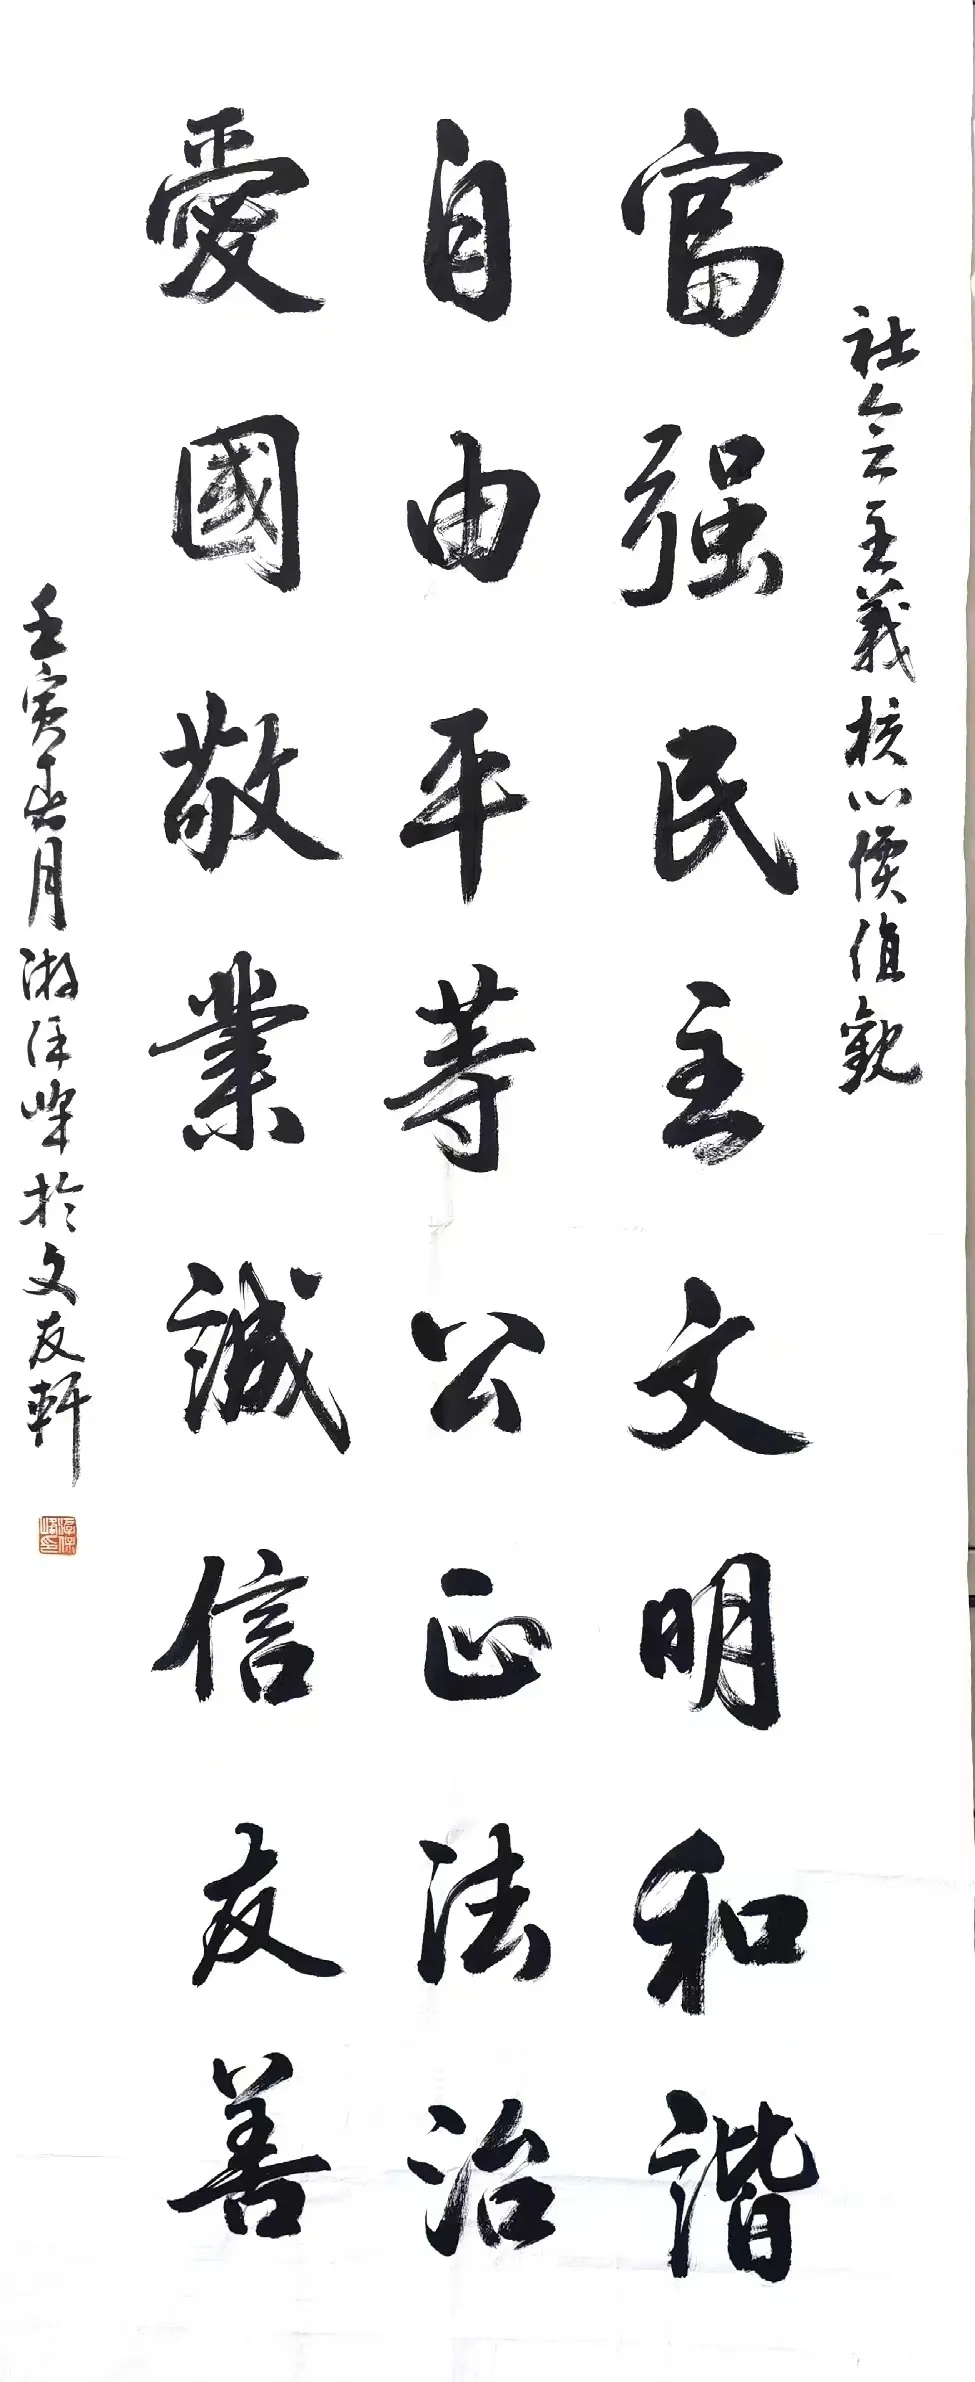 社会主義核心價值觀
富强民主文明和諧
自由平等公正法治
愛國敬業誠信友善
壬寅春月游保峰於文友軒